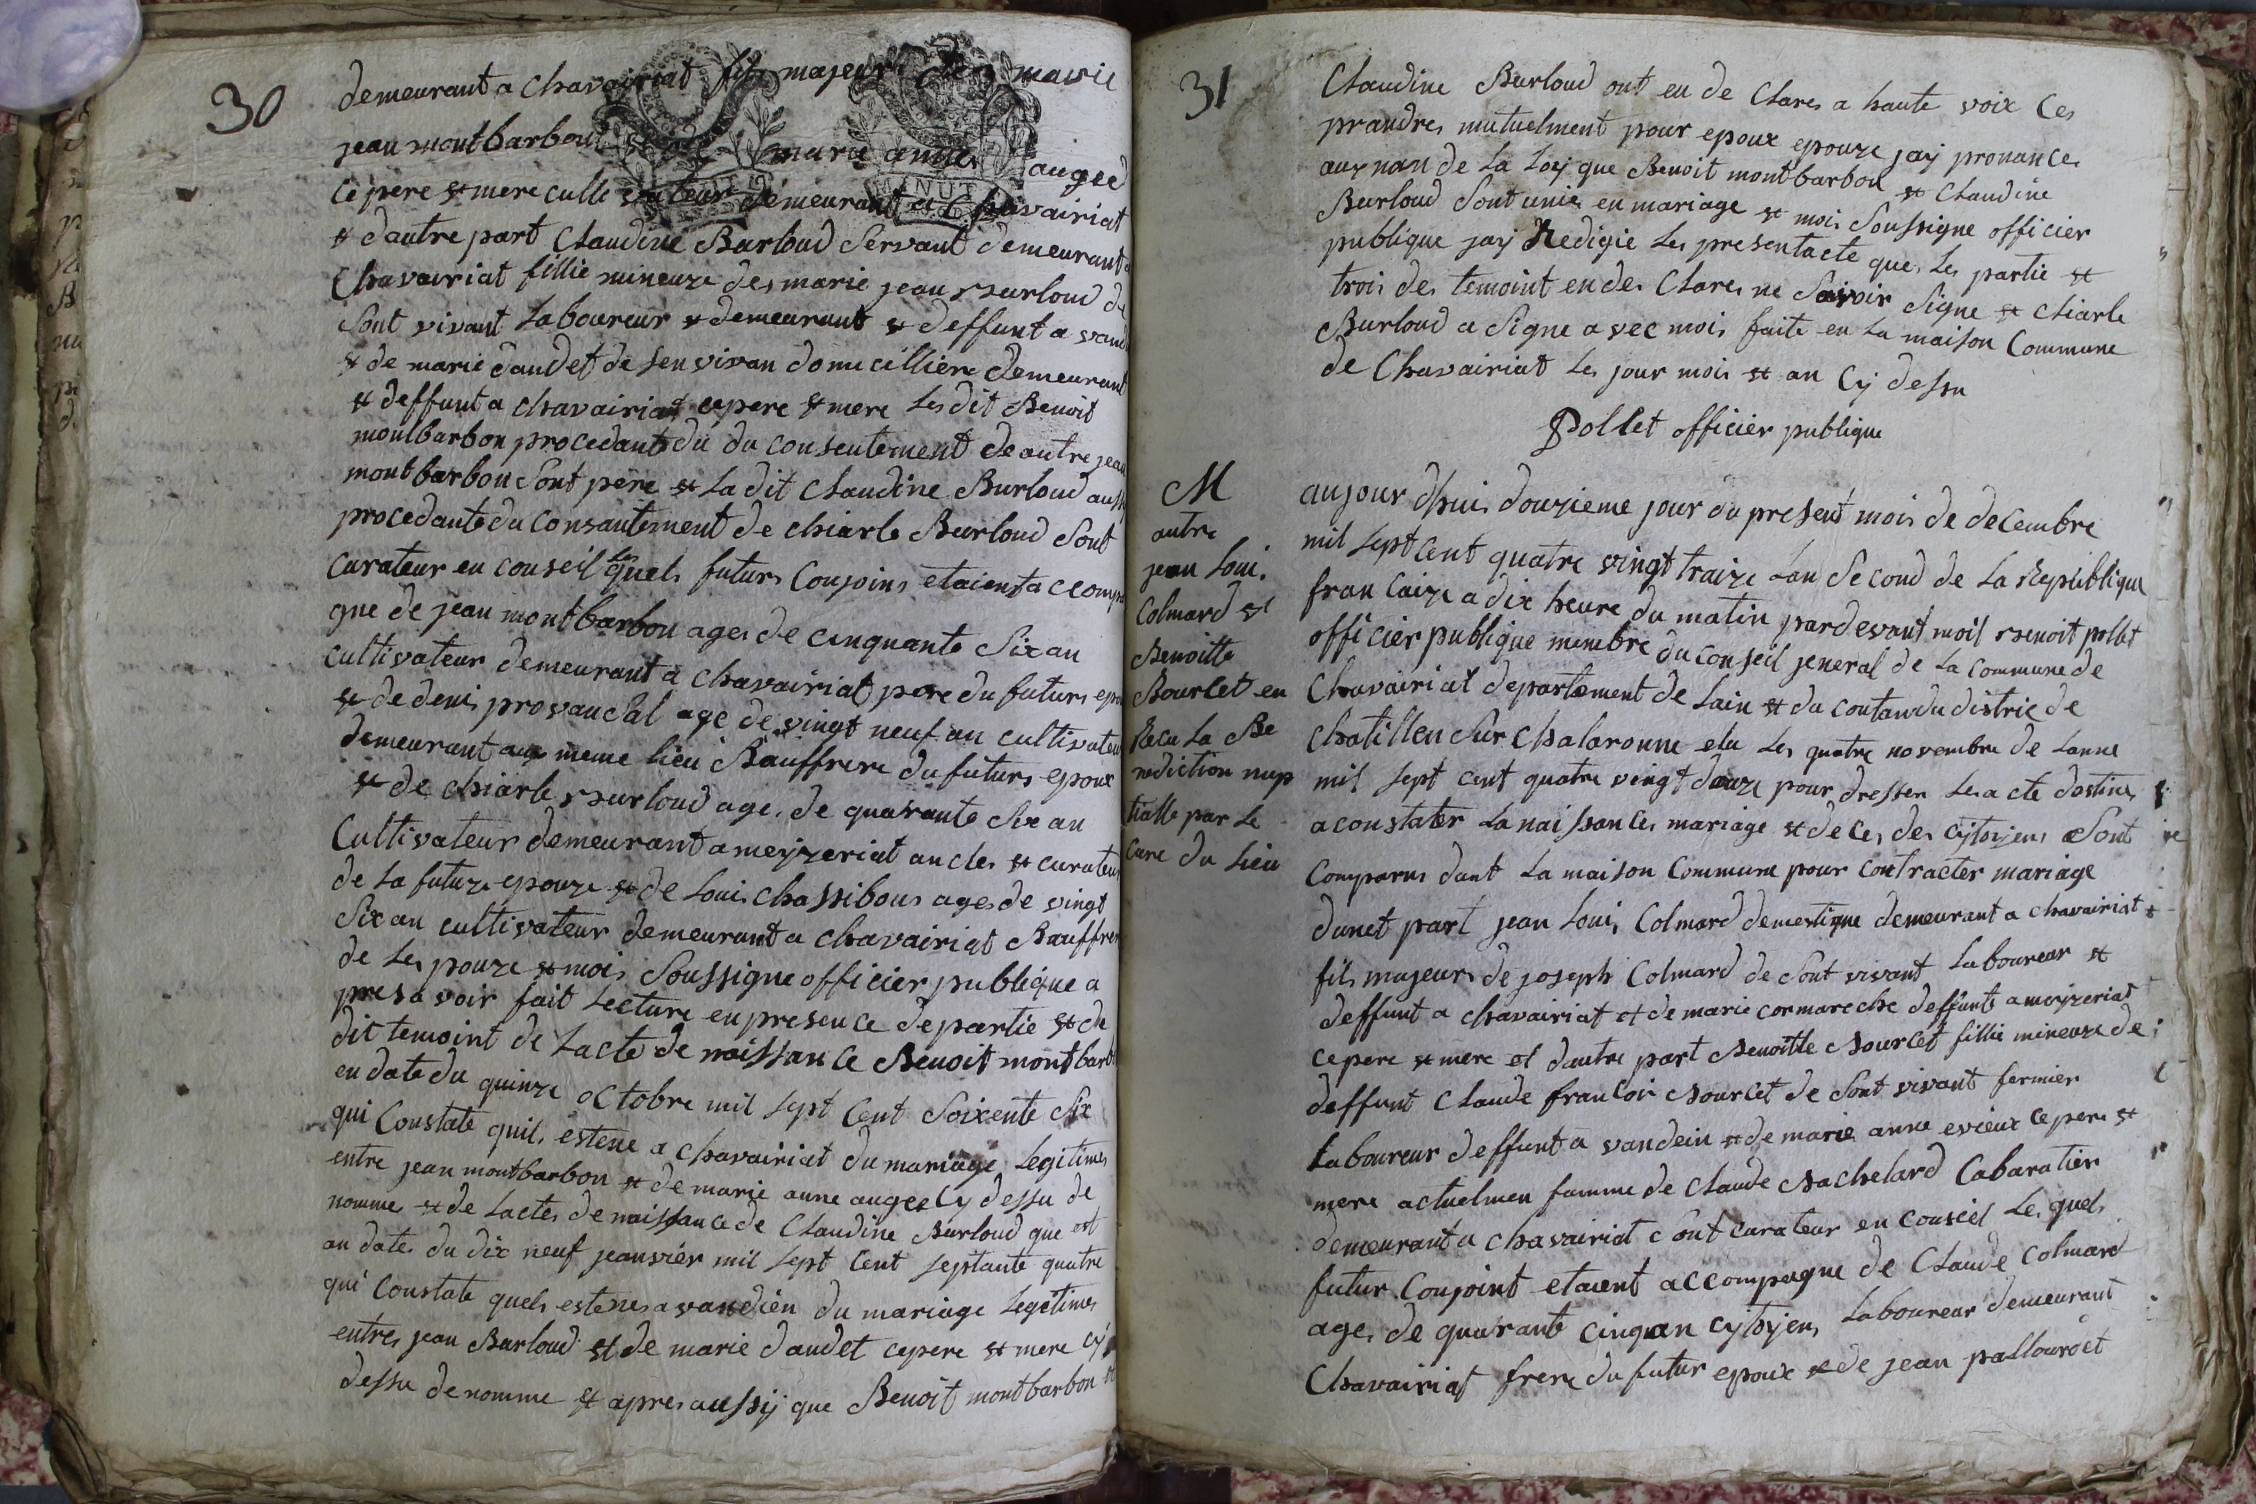 30
demeurant a chavairiat fils majeur des marie
jean montbarbon et de marie anne augee
ce pere et mere culti vateur demeurant a Chavairiat
et dautre part Claudine Burloud Servant demeurant a
Chavairiat fillie mineuze des marie jean Burloud de
Sont vivant Laboureur et demeurant et deffunt a vand
et de marie daudet de sen vivan domicilliere demeurant
et deffunt a chavairiat ce pere et mere Les dit Benoit
montbarbon procedant du du consentement de autre jean
montbarbon Sont pere et La dit Claudine Burloud aussy
procedante du Consantement de chiarle Burloud Sont
curateur en conseil les quels futurs Conjoins etaient accompa
gne de jean montbarbon ages de cinquante Six an
cultivateur demeurant a chavairiat pere du futurs epou
et de denis provanchal age de vingt neuf an cultivateur
demeurant au meme lieu Bauffrere du futurs epoux
et de chiarle Burloud age de quarante Six an
Cultivateur demeurant a meyzeriat ancles et curateur
de La futuze epouze et de Louis chassibous ages de vingt
Six an cultivateur demeurant a chavairiat Bauffrere
de Les pouze et mois Soussigne officier publique a
pres avoir fait Lecture en presence de partie et de
dit temoint de Lacte de naissance Benoit montbarb
en date du quinze octobre mil sept Cent Soixente Six
qui Constate quils estene a chavairiat du mariage Legitimes
entre jean montbarbon et de marie anne augee Cy dessu de
nomme et de Lactes de naissance de Claudine Burloud que est
an dates du dix neuf jeanvier mil sept Cent septante quatre
qui Constate quels estenes a vandein du mariage Legitimes
entres jean Burloud et de marie daudet ce pere et mere cy
dessu de nomme et apres aussy que Benoit montbarbon et
31
Claudine Burloud ont en de Clares a haute voix Ces
prandres mutuelment pour epoux epouze jay pronances
aux nan de La Loy que Benoit montbarbon et Claudine
Burloud Sont unie en mariage et mois Soussigne officier
publique jay Redigie Les presentacte ques Les partie et
trois des temoint en des Clares ne Savoir Signe et chiarle
Burloud a Signe avec mois faite en La maison Commune
de Chavairiat Les jour mois et an Cy dessu
Pollet officier publique
M
autre
jean Loui.
Colmard et
Benoitte
Bourcet en
Recu La Be
nediction nup
tialle par Le
Cure du Lieu
aujour dhuis douzieme jour du present mois de decembre
mil sept cent quatre vingt traize Lan Second de La Republique
francaize a dix heure du matin pardevant moil Benoit pollet
officier publique membre du conseil jeneral de La commune de
Chavairiat departement de Lain et du contandu districe de
chatillon Sur chalaronne elu Les quatre novembre de Lanne
mil sept cent quatre vingt douze pour dresser Les acte destines
a constater La naissances mariage et de ces des citoyens Sont
Comparus dant La maison Commune pour contracter mariage
dunet part jean Louis Colmard demestique demeurant a chavairiat
fils majeurs de joseph Colmard de Sont vivant Laboureur et
deffunt a chavairiat et de marie cormareche deffunte a meyzeriat
ce pere et mere et dautre part Benoitte Bourcet fillie mineuze de
deffunt Claude francois Bourcet de Sont vivant fermier
Laboureur deffunt a vandein et de marie anne evieux ce pere et
mere actuelmen famme de Claude Bachelard Cabaratier
demeurant a chavairiat Sont curateur en conseil Les quels
futur Conjoint etaient accompagne de Claude Colmard
ages de quarante cinq an cytoyens Laboureur demeurant
Chavairiat frere du futur epoux et de jean pallourdet